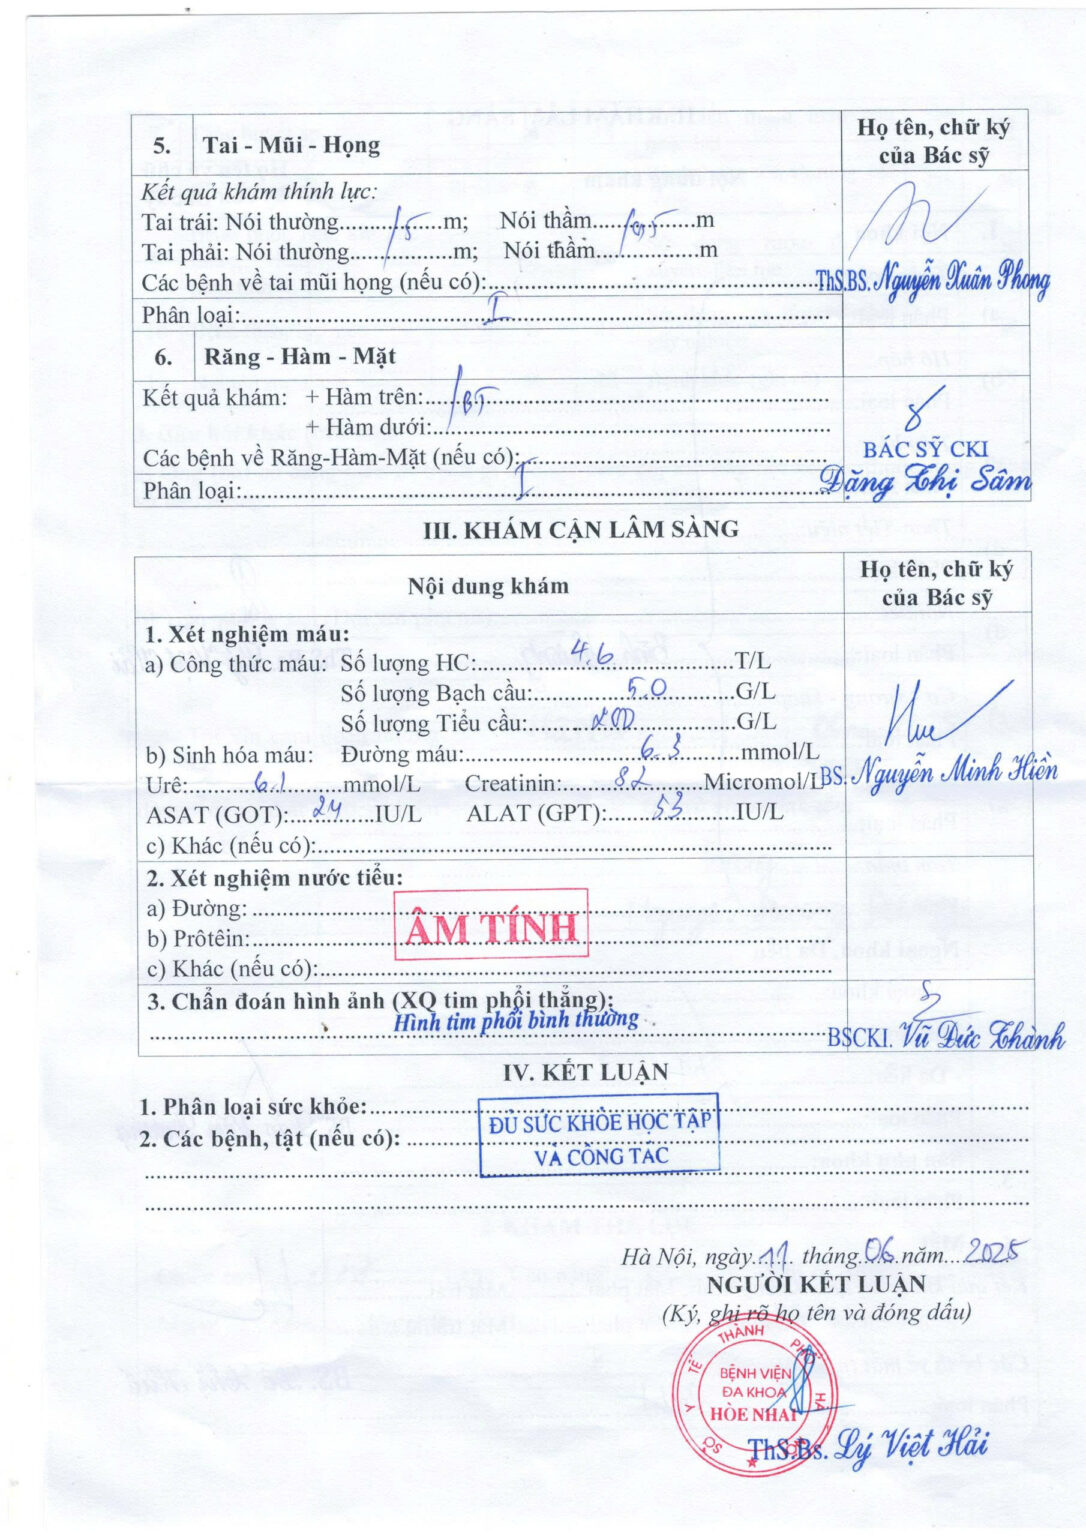 5. Tai - Mũi - Họng
Họ tên, chữ ký
của Bác sỹ
Kết quả khám thính lực:
Tai trái: Nói thường...............5..........m; Nói thầm...............0,5..........m
Tai phải: Nói thường....................m; Nói thầm....................m
Các bệnh về tai mũi họng (nếu có):
ThS.BS. Nguyễn Xuân Phong
Phân loại: I
6. Răng - Hàm - Mặt
Kết quả khám: + Hàm trên: BT
+ Hàm dưới:
BÁC SỸ CKI
Các bệnh về Răng-Hàm-Mặt (nếu có):
Đặng Thị Sâm
Phân loại: I
III. KHÁM CẬN LÂM SÀNG
Nội dung khám
Họ tên, chữ ký
của Bác sỹ
1. Xét nghiệm máu:
a) Công thức máu: Số lượng HC: 4.6 T/L
Số lượng Bạch cầu: 5.0 G/L
Số lượng Tiểu cầu: 200 G/L
b) Sinh hóa máu: Đường máu: 6.3 mmol/L
Urê: 6.1 mmol/L Creatinin: 82 Micromol/L
BS. Nguyễn Minh Hiền
ASAT (GOT): 24 IU/L ALAT (GPT): 53 IU/L
c) Khác (nếu có):
2. Xét nghiệm nước tiểu:
a) Đường:
ÂM TÍNH
b) Prôtêin:
c) Khác (nếu có):
3. Chẩn đoán hình ảnh (XQ tim phổi thẳng):
Hình tim phổi bình thường
BSCKI. Vũ Đức Thành
IV. KẾT LUẬN
1. Phân loại sức khỏe:
ĐỦ SỨC KHỎE HỌC TẬP
VÀ CÔNG TÁC
2. Các bệnh, tật (nếu có):
Hà Nội, ngày 11 tháng 06 năm 2025
NGƯỜI KẾT LUẬN
(Ký, ghi rõ họ tên và đóng dấu)
SỞ Y TẾ THÀNH PHỐ HÀ NỘI
BỆNH VIỆN
ĐA KHOA
HÒE NHAI
ThS.Bs. Lý Việt Hải